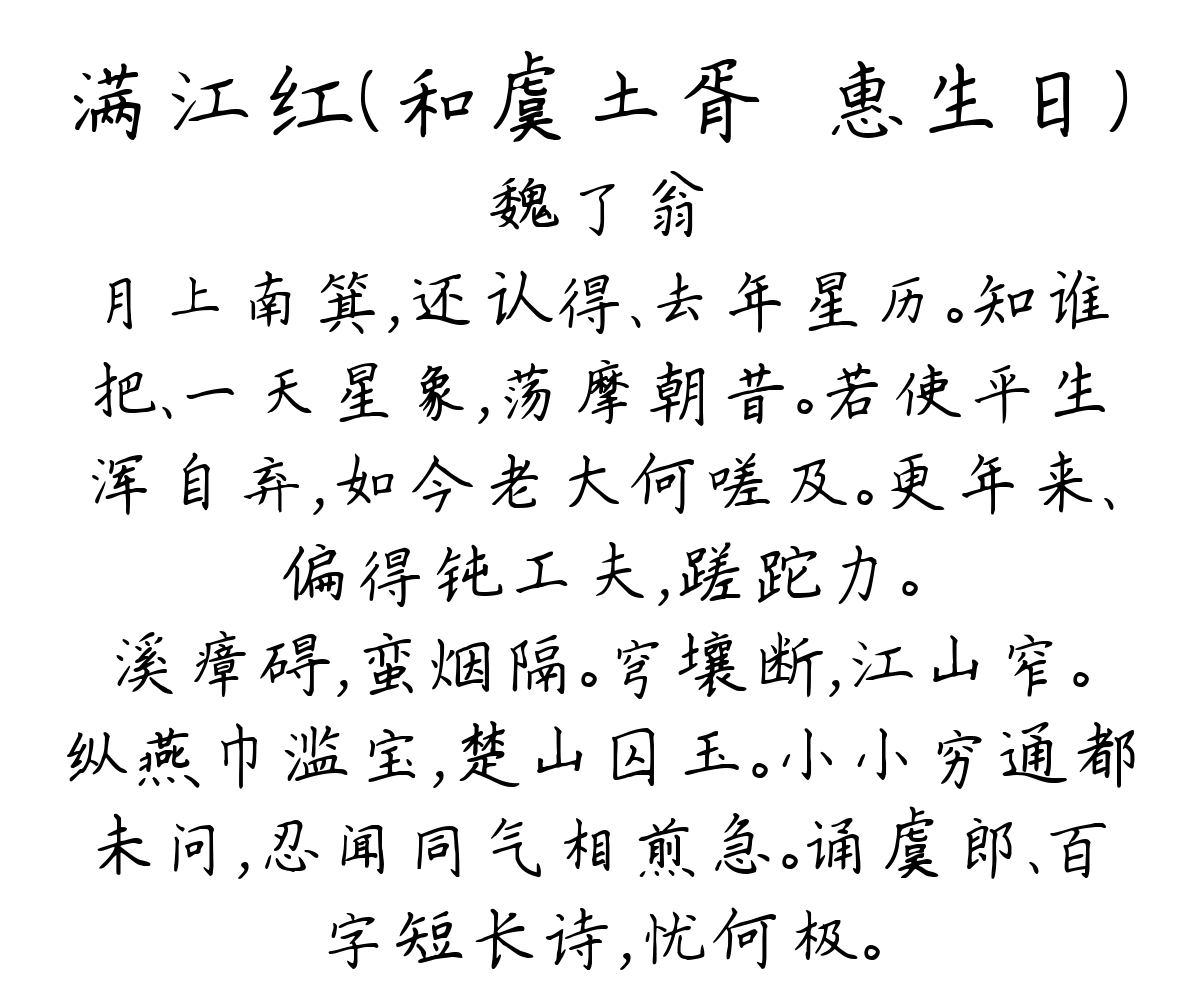 满江红(和虞土胥 惠生日)
魏了翁
月上南箕,还认得、去年星历。知谁
把、一天星象,荡摩朝昔。若使平生
浑自弃,如今老大何嗟及。更年来、
偏得钝工夫,蹉跎力。
溪瘴碍,蛮烟隔。穹壤断,江山窄。
纵燕巾滥宝,楚山囚玉。小小穷通都
未问,忍闻同气相煎急。诵虞郎、百
字短长诗,忧何极。